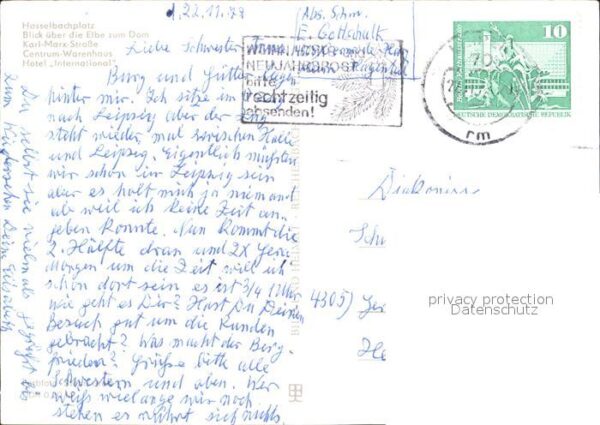 Hasselbachplatz
Blick über die Elbe zum Dom
Karl-Marx-Straße
Centrum-Warenhaus
Hotel „International"
22.11.79
(Abs. Schw.
E. Gottschalk
Liebe Schwester
NEUJAHRSPOST
bitte
rechtzeitig
absenden!
10
DEUTSCHE DEMOKRATISCHE REPUBLIK
rm
Burg und Güter liegen
hinter mir. Ich sitze im
nach Leipzig aber der Zug
steht wieder mal zwischen Halle
und Leipzig. Eigentlich müßten
wir schon in Leipzig sein
aber es holt mich ja niemand
ab weil ich keine Zeit an-
geben konnte. Nun kommt die
2. Hälfte dran und 2x
Morgen um die Zeit will ich
schon dort sein es ist 3/4 1 Uhr
wie geht es Dir? Hast Du Deinen
Besuch gut um die Runden
gebracht? Was macht der Burg-
frieden? Grüße bitte alle
Schwestern und oben. Wer
weiß wie lange wir noch
stehen es rührt sich nichts.
Du selbst sei vielmals gegrüßt bis
zum Wiedersehen Deine Elisabeth
Diakoniss
Schw
4305)
privacy protection
Datenschutz